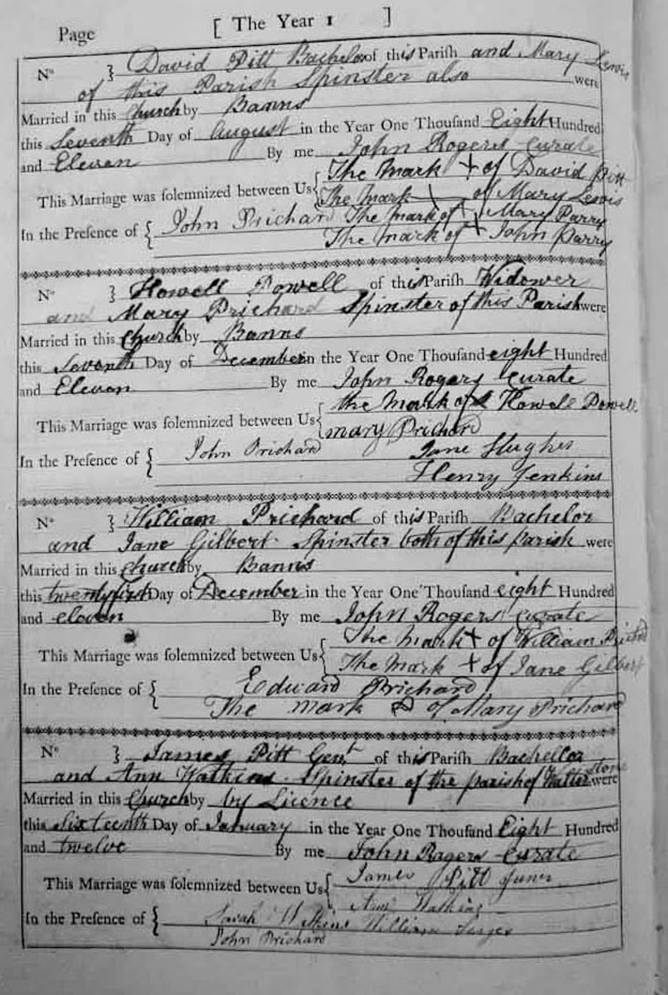 Page [ The Year 1 ]
No } David Pitt Bachelor of this Parish and Mary Lewis
of this Parish Spinster also were
Married in this Church by Banns
this Seventh Day of August in the Year One Thousand Eight Hundred
and Eleven By me John Rogers Curate
This Marriage was solemnized between Us { The Mark + of David Pitt
The Mark of Mary Lewis
In the Presence of { John Prichard The mark of + Mary Parry
The mark of + John Parry
No } Howell Powell of this Parish Widower
and Mary Prichard Spinster of this Parish were
Married in this Church by Banns
this Seventh Day of December in the Year One Thousand eight Hundred
and Eleven By me John Rogers Curate
This Marriage was solemnized between Us { the Mark of Howell Powell
mary Prichard
In the Presence of { John Prichard Jane Hughes
Henry Jenkins
No } William Prichard of this Parish Bachelor
and Jane Gilbert Spinster both of this parish were
Married in this Church by Banns
this twenty first Day of December in the Year One Thousand eight Hundred
and eleven By me John Rogers Curate
This Marriage was solemnized between Us { The mark + of William Prichard
The Mark + of Jane Gilbert
In the Presence of { Edward Prichard
The mark of Mary Prichard
No } James Pitt Gent of this Parish Bachellor
and Ann Watkins Spinster of the parish of Walterstone were
Married in this Church by by Licence
this Sixteenth Day of January in the Year One Thousand Eight Hundred
and twelve By me John Rogers Curate
This Marriage was solemnized between Us { James Pitt Junr
Ann Watkins
In the Presence of { Sarah Watkins William
John Prichard